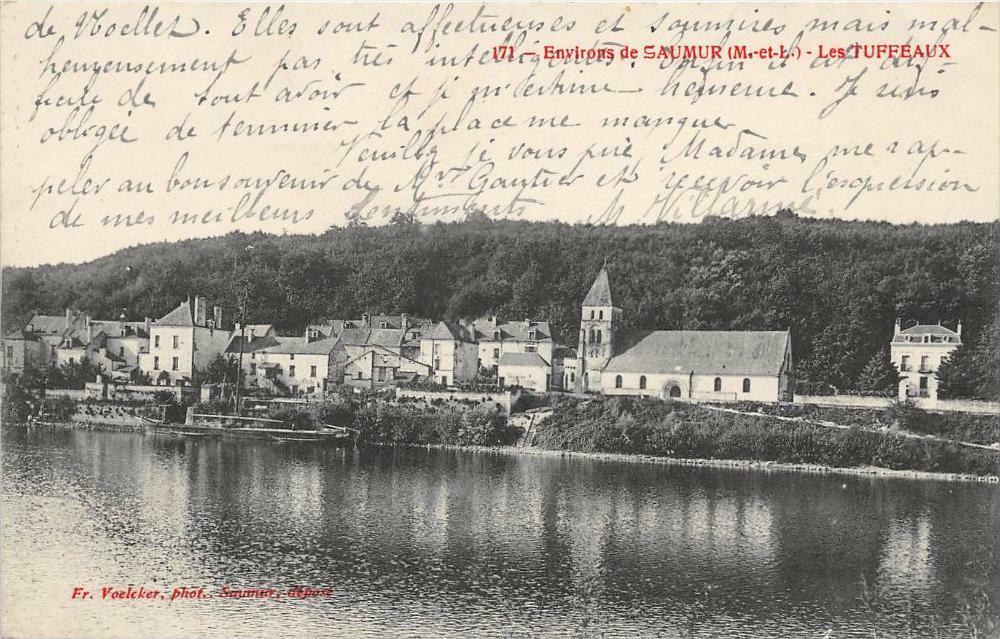 de Noellet. Elles sont affectueuses et soumises mais mal-
171 – Environs de SAUMUR (M.-et-L.) - Les TUFFEAUX
heureusement pas très intelligentes. Enfin il est dif-
ficile de tout avoir et je m'estime heureuse. Je suis
obligée de terminer la place me manquer
Veuillez je vous prie, Madame, me rap-
peler au bon souvenir de Mr Gautier et recevoir l'expression
de mes meilleurs sentiments
Fr. Voelcker, phot., Saumur, déposé